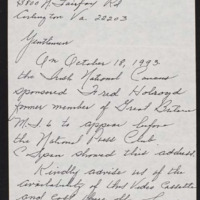 4800 N. Fairfax Rd
Arlington Va. 22203
Gentlemen
On October 18, 1993
the Irish National Caucus
sponsored Fred Holroyd
former member of Great Britain
M I 6 to appear before
the National Press Club
C Span showed this address.
Kindly advise us of the
availability of this Video Cassette
and cost